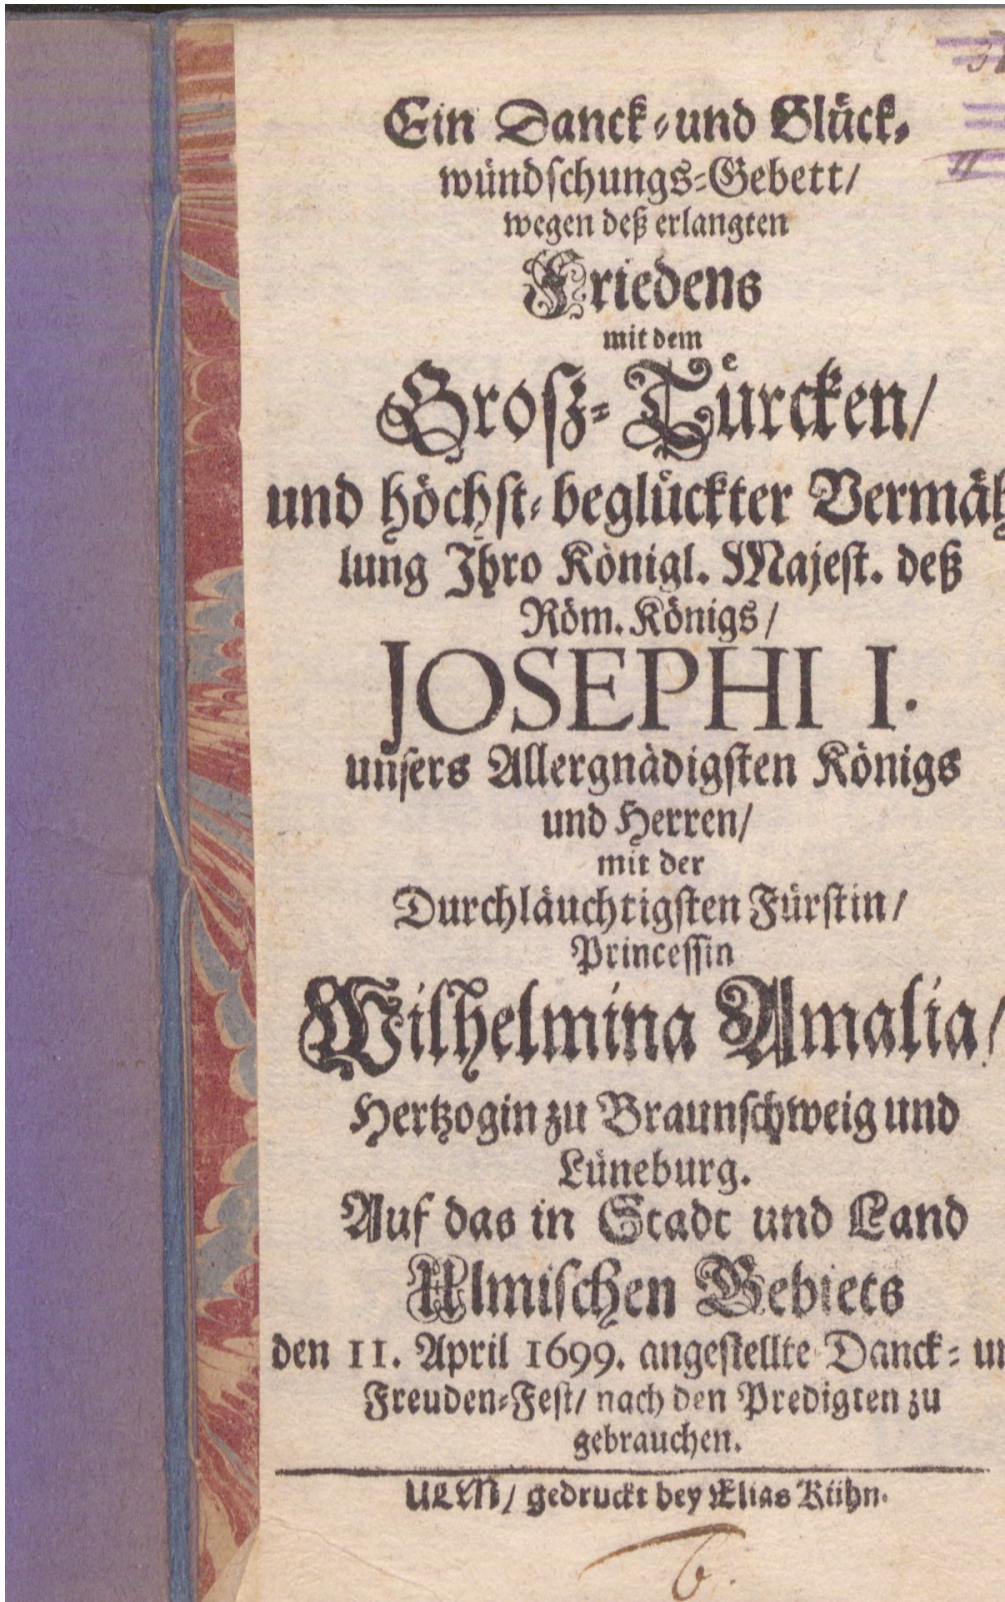 Ein Danck-und Glück-
wündschungs-Gebett/
wegen deß erlangten
Friedens
mit dem
Grosz-Türcken/
und höchst-beglückter Vermäh
lung Ihro Königl. Majest. deß
Röm. Königs/
JOSEPHI I.
unsers Allergnädigsten Königs
und Herren/
mit der
Durchläuchtigsten Fürstin/
Princessin
Wilhelmina Amalia/
Hertzogin zu Braunschweig und
Lüneburg.
Auf das in Stadt und Land
Ulmischen Gebiets
den 11. April 1699. angestellte Danck- un
Freuden-Fest/ nach den Predigten zu
gebrauchen.
ULM/ gedruckt bey Elias Kühn.
6.